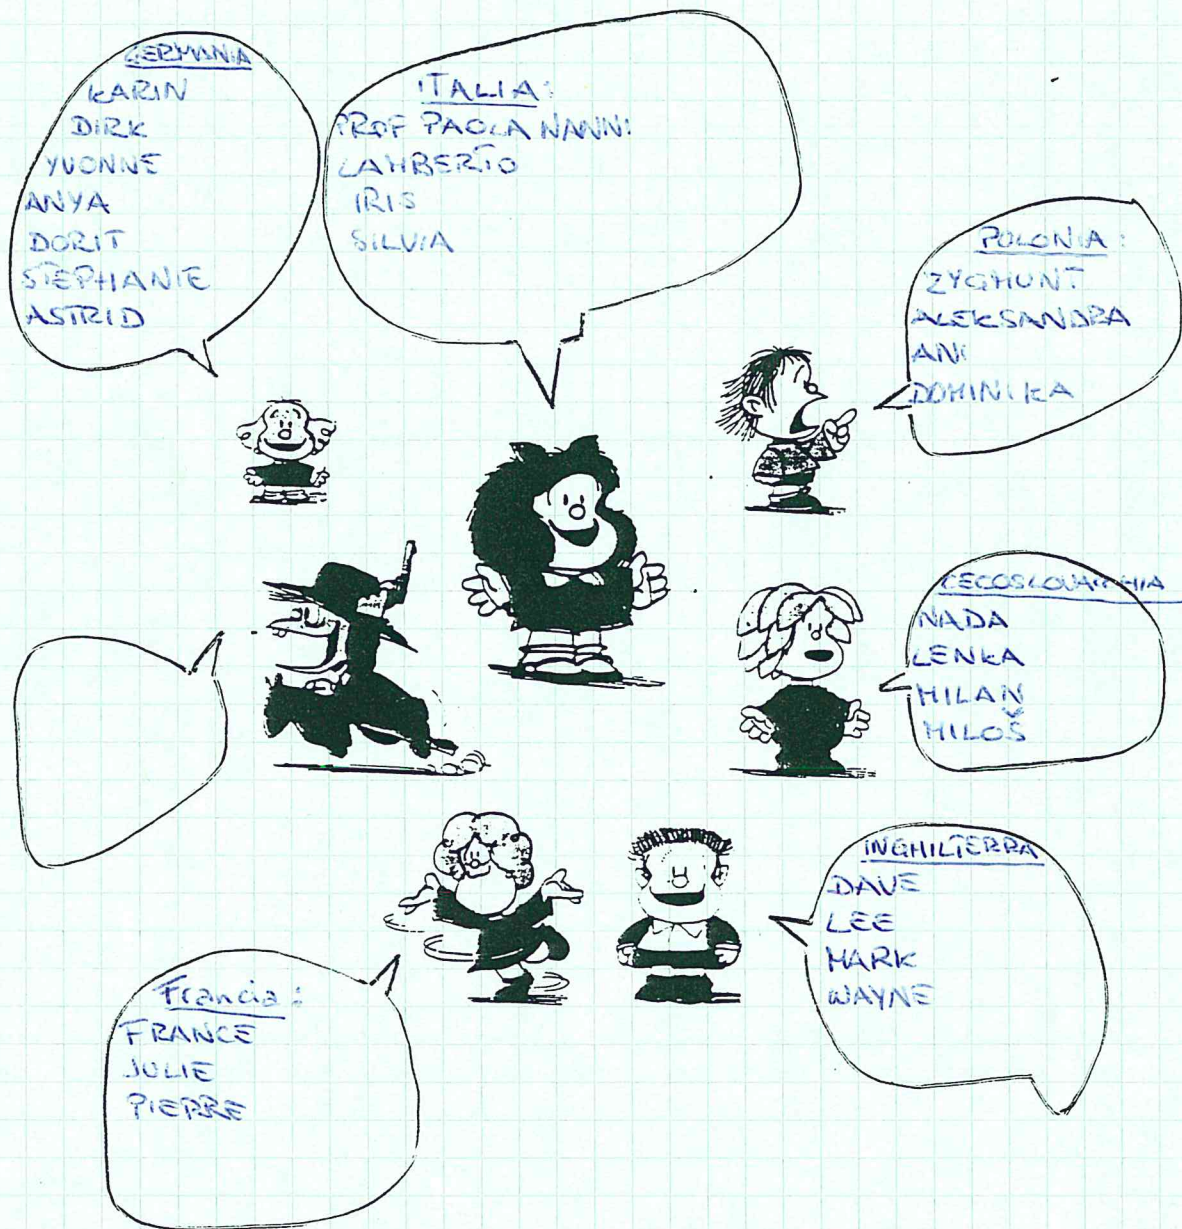 GERMANIA
KARIN
DIRK
YVONNE
ANYA
DORIT
STEPHANIE
ASTRID
ITALIA:
PROF PAOLA NANNI
LAMBERTO
IRIS
SILVIA
POLONIA:
ZYGMUNT
ALEKSANDRA
ANI
DOMINIKA
CECOSLOVACCHIA
NADA
LENKA
MILAN
MILOŠ
INGHILTERRA
DAVE
LEE
MARK
WAYNE
Francia:
FRANCE
JULIE
PIERRE